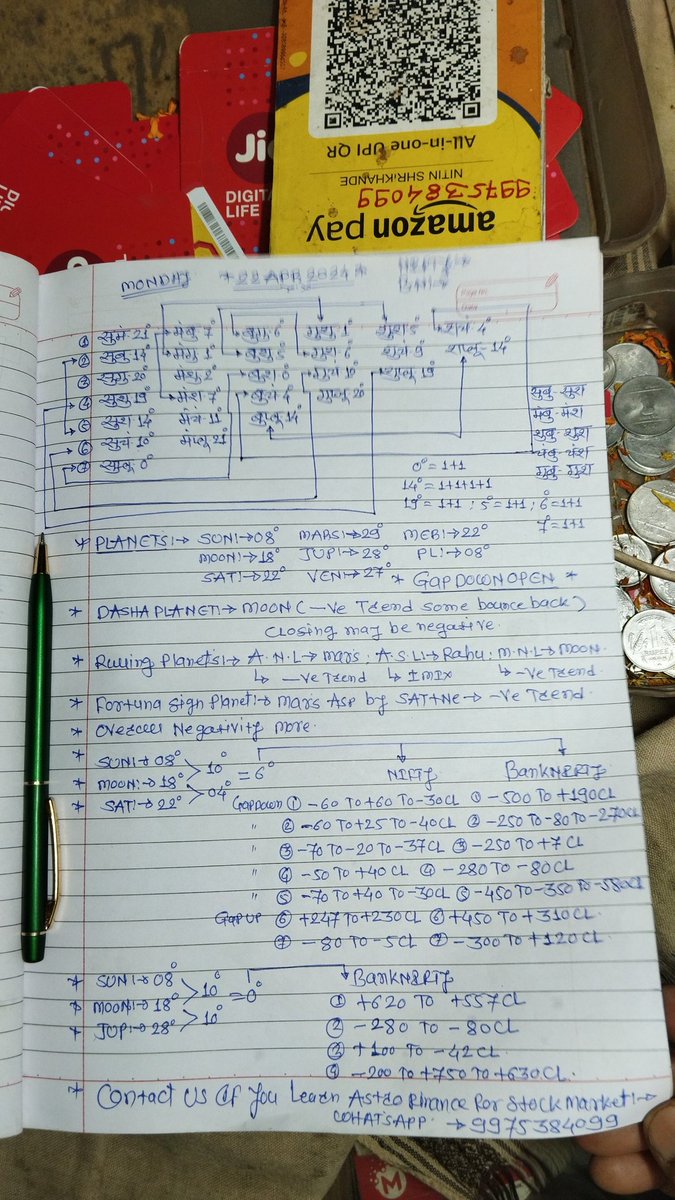 Jio
DIGITAL
LIFE
All-in-one UPI QR
NITIN SHRIKHANDE
9975384099
amazon pay
MONDAY * 22 APR 2024 *
① सुमे 21° मेबु 7° बुगु 6° गुशु 1° शुश 5° शचं 4°
② सुबु 14° मेगु 1° बुशु 5° गुश 6° शुचं 9° शलू 14°
③ सुगु 20° मेशु 2° बुश 0° गुचं 10° शुलू 19°
④ सुशु 19° मेश 7° बुचं 4° गुलू 20°
⑤ सुश 14° मेचं 11° बुलू 14°
⑥ सुचं 10° मेलू 21°
⑦ सुलू 0°
सुबु-सुश
मेबु-मेश
शुबु-शुश
चंबु-चंश
गुबु-गुश
0° = 1+1
14° = 1+1+1+1
19° = 1+1 ; 5° = 1+1 ; 6° = 1+1
7° = 1+1
* PLANETS:→ SUN:→08° MARS:→29° MER:→22°
MOON:→18° JUP:→28° PL:→08°
SAT:→22° VEN:→27° * GAP DOWN OPEN *
* DASHA PLANET:→ MOON (-Ve Trend some bounce back)
Closing may be negative.
* Ruling Planets:→ A.N.L→ mars; A.S.L:→ Rahu; M.N.L→MOON.
↳ -Ve Trend ↳ IMIX ↳ -Ve Trend.
* Fortuna Sign Planet:→ Mars Asp by SAT+Ne→ -Ve Trend.
* Overcell Negativity more.
* SUN:→08°
* MOON:→18° > 10° = 6° NIFTY BankNIFTY
* SAT:→22° > 04° GapDown ① -60 To +60 To -30CL ① -500 To +190CL
" ② -60 To +25 To -40CL ② -250 To -80 To -270CL
" ③ -70 To -20 To -37CL ③ -250 To +7CL
" ④ -50 To +40CL ④ -280 To -80CL
" ⑤ -70 To +40 To -30CL ⑤ -450 To -350 To -580CL
GapUP ⑥ +247 To +230CL ⑥ +450 To +310CL.
⑦ -80 To -5CL ⑦ -300 To +120CL
* SUN:→08° BankNIFTY
* MOON:→18° > 10° = 0° ① +620 To +557CL
* JUP:→28° > 10° ② -280 To -80CL
② +100 To -42CL.
④ -200 To +750 To +630CL.
* Contact us if You Learn Astro Finance for Stock Market:→
WHATSAPP. → 9975384099